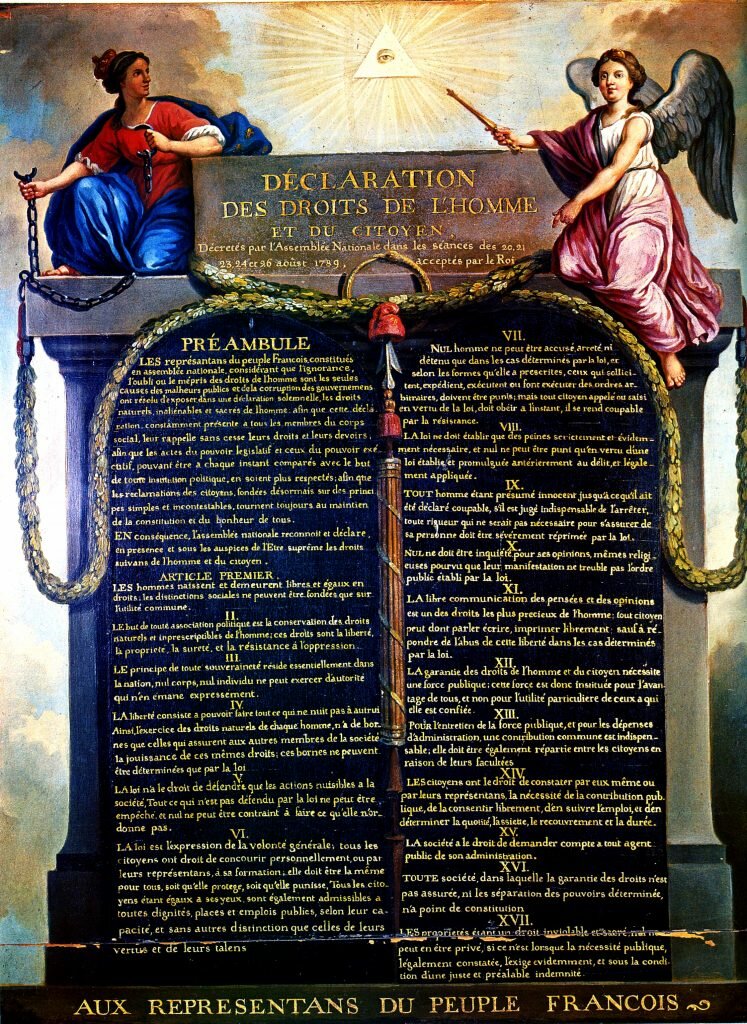 DÉCLARATION
DES DROITS DE L'HOMME
ET DU CITOYEN,
Décretés par l'Assemblée Nationale dans les séances des 20, 21
23, 24 et 26 aoûst 1789, acceptés par le Roi
PRÉAMBULE
LES représantans du peuple Francois, constitués
en assemblée nationale, considérant que l'ignorance,
l'oubli ou le mépris des droits de l'homme sont les seules
causes des malheurs publics et de la corruption des gouvernemens
ont résolu d'exposer dans une déclaration solemnelle, les droits
naturels, inaliénables et sacrés de l'homme; afin que cette décla
ration, constamment présente a tous les membres du corps
social, leur rappelle sans cesse leurs droits et leurs devoirs,
afin que les actes du pouvoir legislatif et ceux du pouvoir exé
cutif, pouvant être a chaque instant comparés avec le but
de toute institution politique, en soient plus respectés; afin que
les reclamations des citoyens, fondées désormais sur des princi
pes simples et incontestables, tournent toujours au maintien
de la constitution et du bonheur de tous.
EN conséquence, l'assemblée nationale reconnoit et déclare,
en presence et sous les auspices de l'Etre suprême les droits
suivans de l'homme et du citoyen.
ARTICLE PREMIER.
LES hommes naissent et demeurent libres et égaux en
droits; les distinctions sociales ne peuvent être fondées que sur
l'utilité commune.
II.
LE but de toute association politique est la conservation des droits
naturels et inprescriptibles de l'homme; ces droits sont la liberté,
la propriété, la sureté, et la résistance à l'oppression.
III.
LE principe de toute souveraineté réside essentiellement dans
la nation, nul corps, nul individu ne peut exercer d'autorité
qui n'en émane expressément.
IV.
LA liberté consiste a pouvoir faire tout ce qui ne nuit pas à autrui
Ainsi, l'exercice des droits naturels de chaque homme, n'a de bor-
nes que celles qui assurent aux autres membres de la société
la jouissance de ces mêmes droits; ces bornes ne peuvent
être déterminées que par la loi.
V.
LA loi n'a le droit de défendre que les actions nuisibles a la
société, Tout ce qui n'est pas défendu par la loi ne peut être
empêché, et nul ne peut être contraint à faire ce qu'elle n'or-
donne pas.
VI.
LA loi est l'expression de la volonté générale; tous les
citoyens ont droit de concourir personnellement, ou par
leurs représentans, à sa formation; elle doit être la même
pour tous, soit qu'elle protege, soit qu'elle punisse, Tous les cito
yens étant égaux a ses yeux, sont également admissibles a
toutes dignités, places et emplois publics, selon leur ca-
pacité, et sans autres distinction que celles de leurs
vertus et de leurs talens
VII.
NUL homme ne peut être accusé, arreté, ni
détenu que dans les cas déterminés par la loi, et
selon les formes qu'elle a prescrites, ceux qui sollici-
tent, expédient, exécutent ou font exécuter des ordres ar-
bitraires, doivent être punis; mais tout citoyen appelé ou saisi
en vertu de la loi, doit obéir a l'instant, il se rend coupable
par la résistance.
VIII.
LA loi ne doit établir que des peines strictement et évidem-
ment nécessaire, et nul ne peut être puni qu'en vertu d'une
loi établie, et promulguée antérierement au délit, et légale-
ment appliquée.
IX.
TOUT homme étant présumé innocent jusqu'à ce qu'il ait
été déclaré coupable, s'il est jugé indispensable de l'arrêter,
toute rigueur qui ne serait pas nécessaire pour s'assurer de
sa personne doit être sévèrement réprimée par la loi.
X.
NUL ne doit être inquiété pour ses opinions, mêmes religi-
euses pourvu que leur manifestation ne trouble pas l'ordre
public établi par la loi.
XI.
LA libre communication des pensées et des opinions
est un des droits les plus precieux de l'homme; tout citoyen
peut donc parler écrire, imprimer librement; sauf à ré-
pondre de l'abus de cette liberté dans les cas déterminés
par la loi.
XII.
LA garantie des droits de l'homme et du citoyen nécessite
une force publique; cette force est donc instituée pour l'avan-
tage de tous, et non pour l'utilité particuliere de ceux a qui
elle est confiée.
XIII.
POUR l'entretien de la force publique, et pour les dépenses
d'administration, une contribution commune est indispen-
sable; elle doit être également répartie entre les citoyens en
raison de leurs facultées
XIV.
LES citoyens ont le droit de constater par eux même ou
par leurs représentans, la nécessité de la contribution pub-
lique, de la consentir librement, d'en suivre l'emploi, et d'en
déterminer la quotité, l'assiette, le recouvrement et la durée.
XV.
LA société a le droit de demander compte a tout agent
public de son administration.
XVI.
TOUTE société, dans laquelle la garantie des droits n'est
pas assurée, ni les séparation des pouvoirs déterminée,
n'a point de constitution
XVII.
LES proprietés étant un droit inviolable et sacré, nul ne
peut en être privé, si ce n'est lorsque la nécessité publique,
légalement constatée, l'exige evidemment, et sous la condi
tion d'une juste et préalable indemnité.
AUX REPRESENTANS DU PEUPLE FRANCOIS